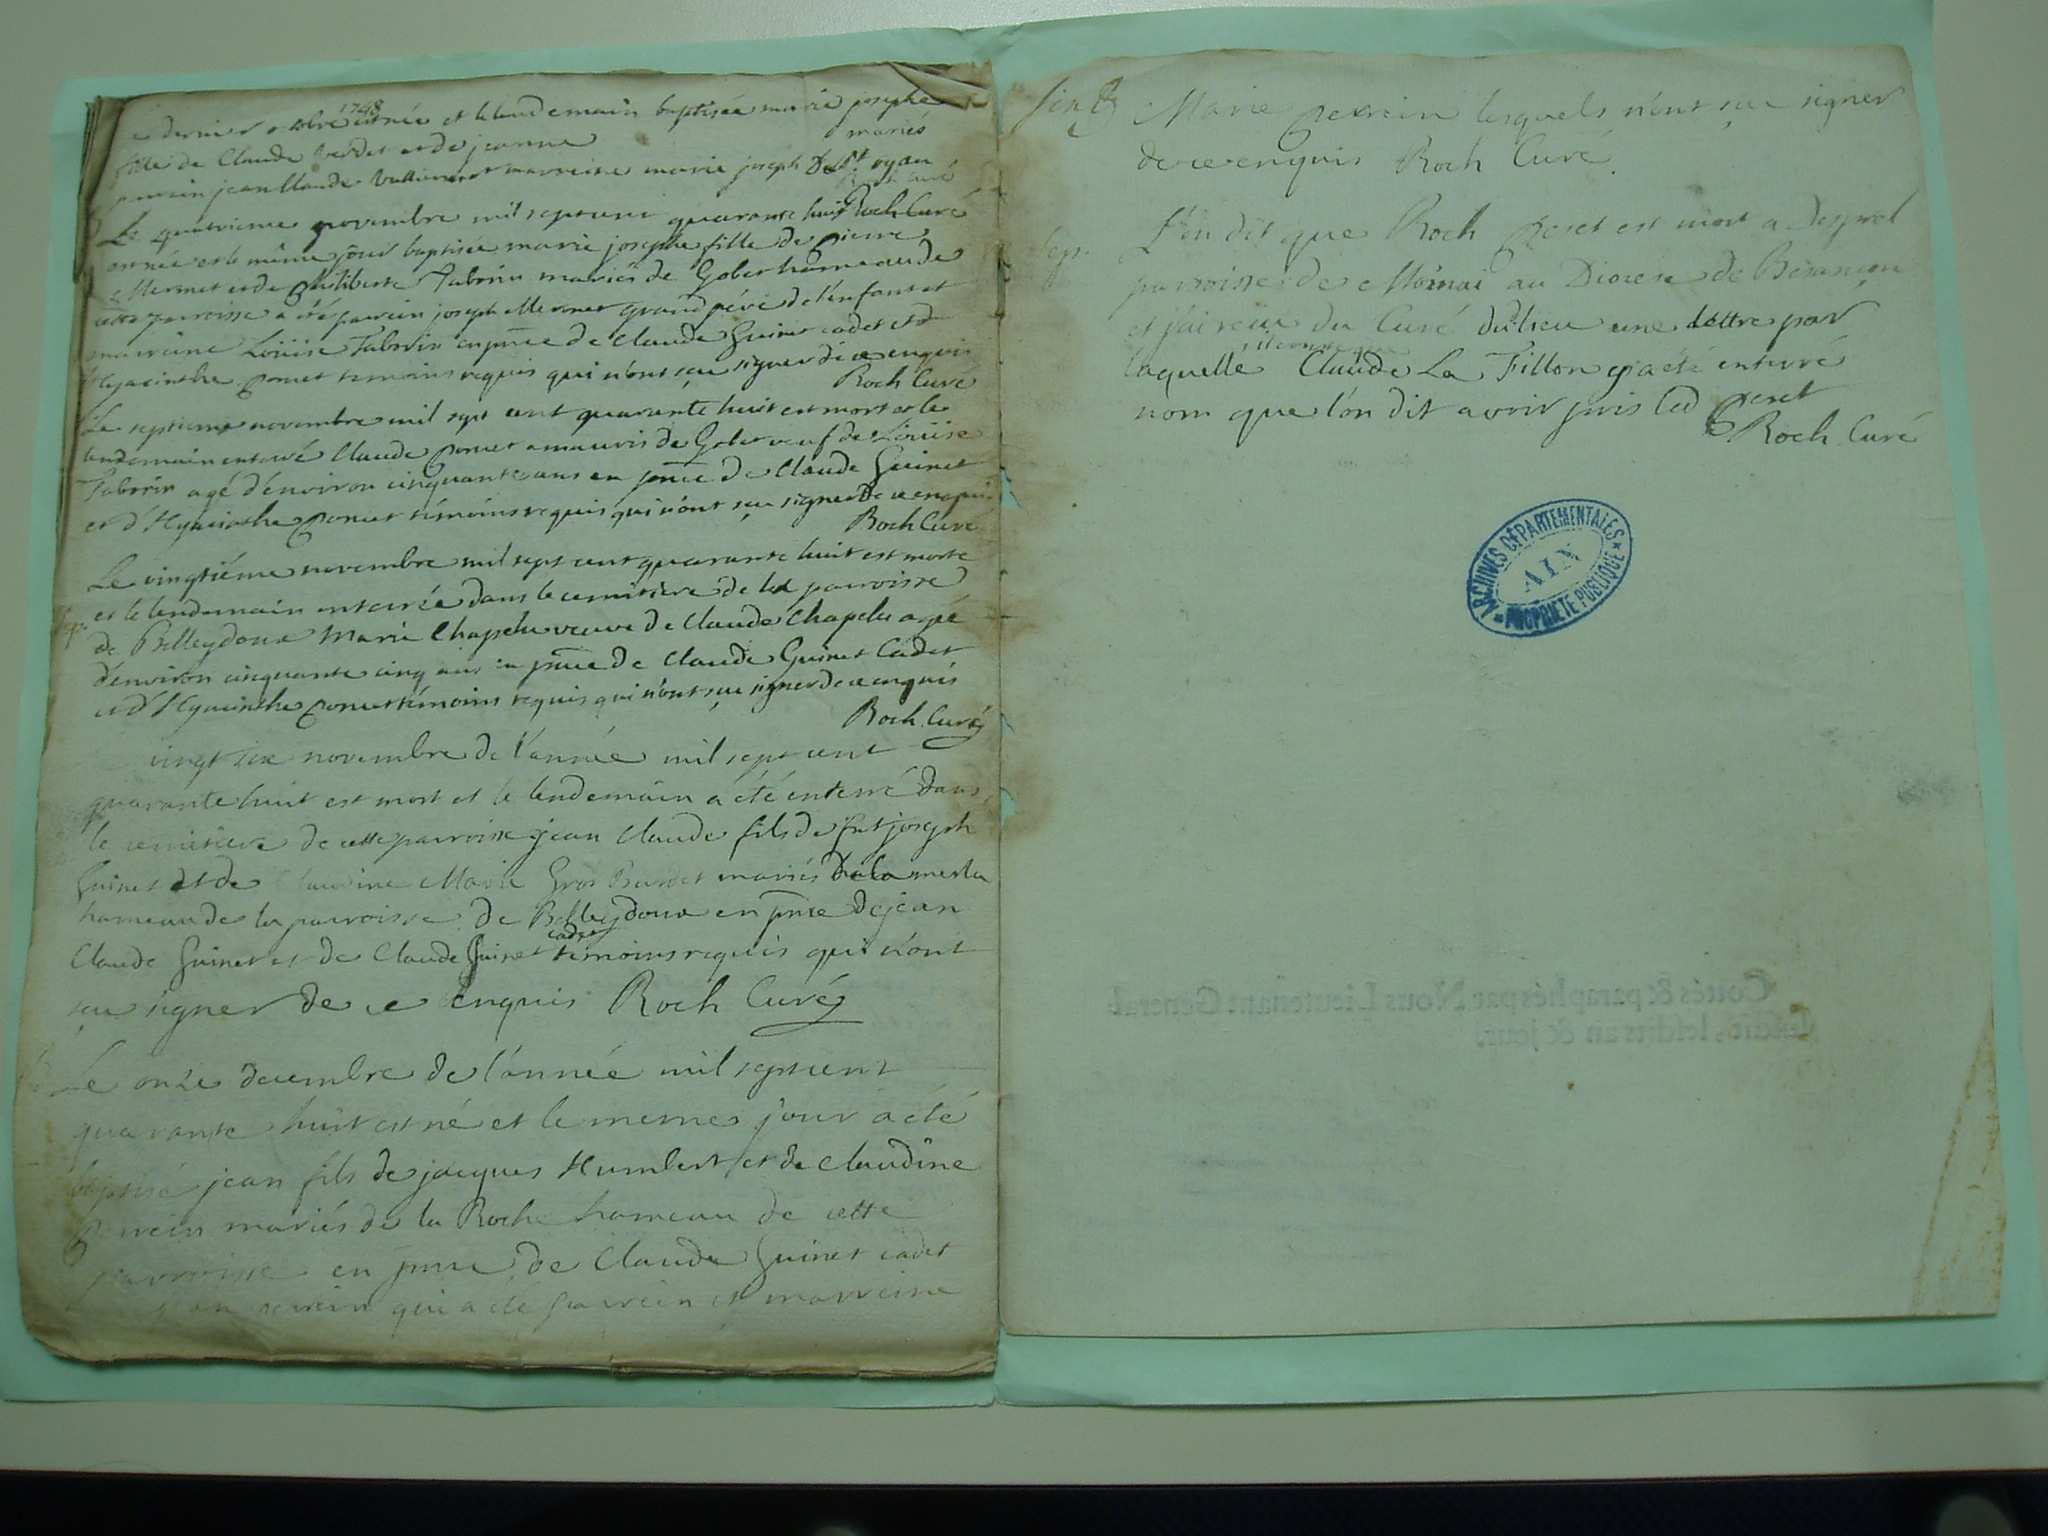 1748
dernier octobre est née et le lendemain baptisée marie josephe
fille de Claude et de jeanne mariés
parrain jean Claude marreine marie joseph De St oyan
Roch Curé
Le quatrieme novembre mil sept cent quarante huit
est née et le même jour baptisée marie josephe fille de pierre
Mermet et de philiberte Taborin mariés de Gobet hameau de
cette parroisse a été parrein joseph Mermet grand pére de l'enfant et
marreine Loüise Taborin en pnce de Claude Guinet cadet et d
Hyacinthe poncet temoins requis qui n'ont sçu signer de ce enquis
Roch Curé
Le septieme novembre mil sept cent quarante huit est mort et le
lendemain enterré Claude poncet amauris de Gobet veuf de Loüise
Taborin agé d'environ cinquante ans en pnce de Claude Guinet
et d'Hyacinthe poncet témoins requis qui n'ont sçu signer De ce enquis
Roch Curé
Le vingtiéme novembre mil sept cent quarante huit est morte
et le lendemain enterrée dans le cemitiere de la parroisse
de Belleydoux Marie Chapelu veuve de Claude Chapelu agée
d'environ cinquante cinq ans en pnce de Claude Guinet Cadet
et d'Hyacinthe poncet témoins requis qui n'ont sçu signer de ce enquis
Roch Curé
vingt six novembre de l'année mil sept cent
quarante huit est mort et le lendemain a été enterré dans
le cemitiere de cette parroisse jean Claude fils de fut joseph
Guinet et de Claudine Marie Gros Burdet mariés De la
hameau de la parroisse de Belleydoux en pnce de jean
Claude Guinet et de Claude Guinet cadet temoins requis qui n'ont
sçu signer de ce enquis Roch Curé
Le onze decembre de l'année mil sept cent
quarante huit est né et le meme jour a été
baptisé jean fils de jacques Humbert et de Claudine
Perrein mariés de la Roche hameau de cette
parroisse en pnce de Claude Guinet cadet
jean perrein qui a été parrein et marreine
Marie perrein lesquels n'ont sçu signer
de ce enquis Roch Curé.
L'on dit que Roch peret est mort a
parroisse de Mornai au Diocese de Besançon
et j'ai reçu du Curé du lieu une lettre par
laquelle Claude La Fillon y a été enterré
nom que l'on dit avoir pris led peret
Roch Curé
ARCHIVES DÉPARTEMENTALES
AIN
PROPRIÉTÉ PUBLIQUE
Cottés & paraphés par Nous Lieutenant Général
susdit, lesdits an & jour.